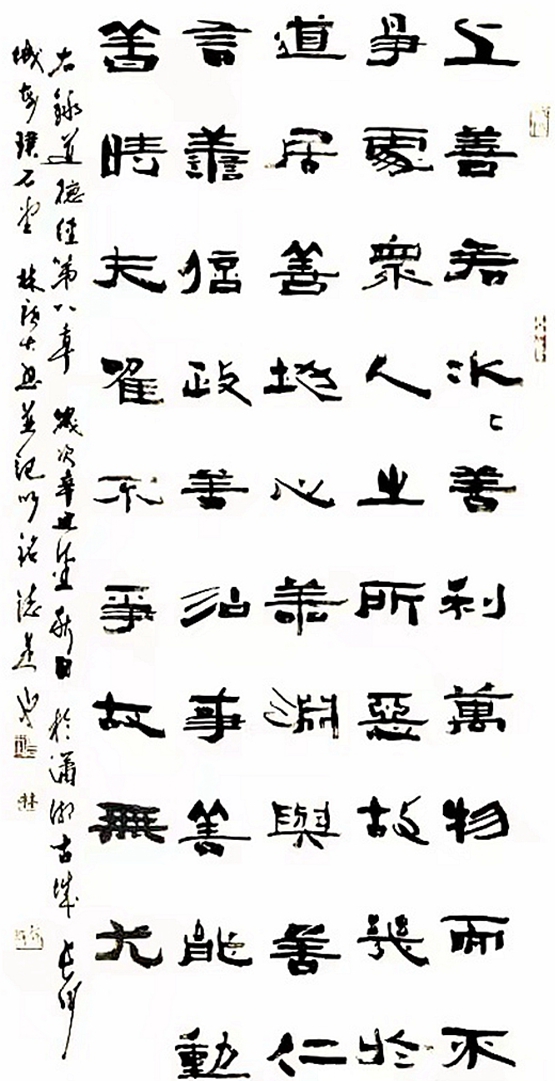 上善若水〻善利萬物而不
爭處衆人之所惡故幾於
道居善地心善淵與善仁
言善信政善治事善能動
善時夫唯不爭故無尤
右錄道德經第八章 歲次辛丑 於瀟湘古城 長沙
城 璞石堂 林 並記以銘誌